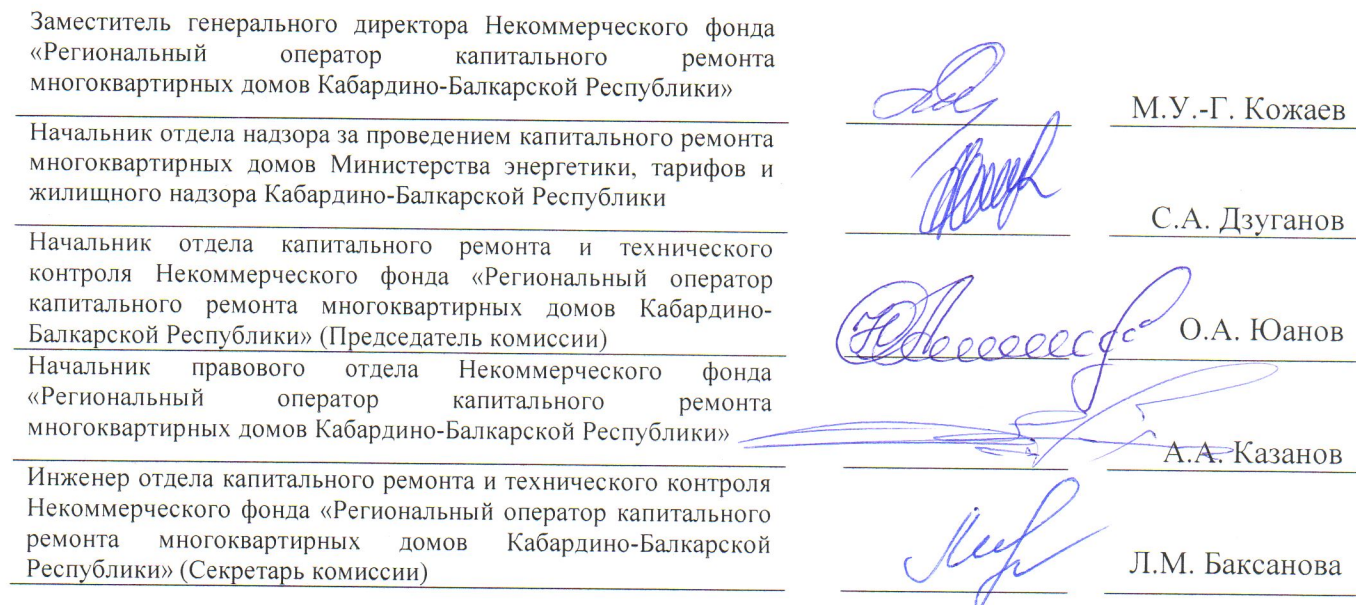 Заместитель генерального директора Некоммерческого фонда
«Региональный оператор капитального ремонта
многоквартирных домов Кабардино-Балкарской Республики»
М.У.-Г. Кожаев
Начальник отдела надзора за проведением капитального ремонта
многоквартирных домов Министерства энергетики, тарифов и
жилищного надзора Кабардино-Балкарской Республики
С.А. Дзуганов
Начальник отдела капитального ремонта и технического
контроля Некоммерческого фонда «Региональный оператор
капитального ремонта многоквартирных домов Кабардино-
Балкарской Республики» (Председатель комиссии)
О.А. Юанов
Начальник правового отдела Некоммерческого фонда
«Региональный оператор капитального ремонта
многоквартирных домов Кабардино-Балкарской Республики»
А.А. Казанов
Инженер отдела капитального ремонта и технического контроля
Некоммерческого фонда «Региональный оператор капитального
ремонта многоквартирных домов Кабардино-Балкарской
Республики» (Секретарь комиссии)
Л.М. Баксанова